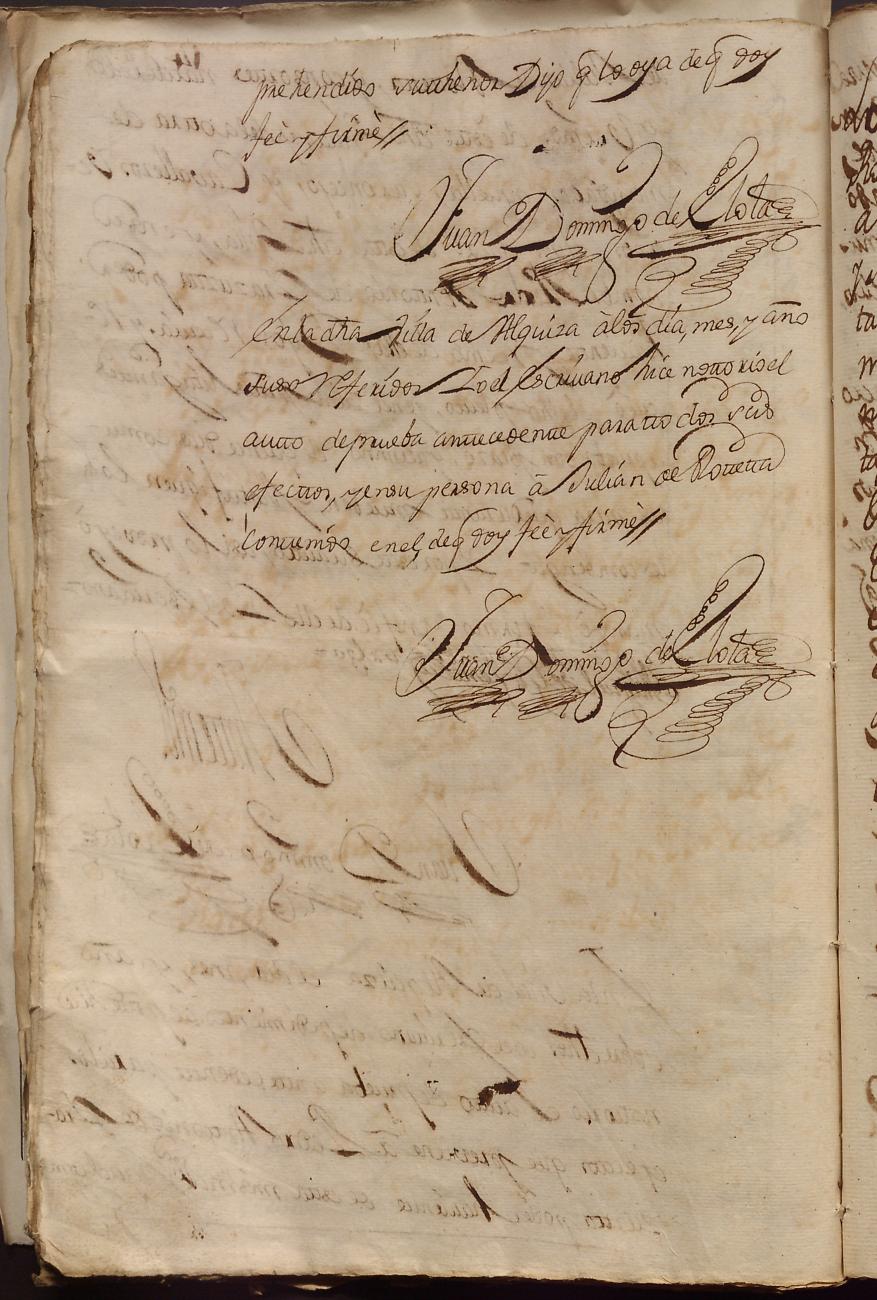 prehendido su thenor Dijo q̃ lo oya de q̃ doy
feè y firmè//
Juan Domingo de Olota
En la dha Villa de Alquiza à los día, mes, y año
suso referidos Yo el Escriuano hice nottorio el
autto de prueba antecedente para ttodos sus
efecttos, y en su persona à Julián de Rottetta
Conttenido en el, de q̃ doy feè y firmè//
Juan Domingo de Olota